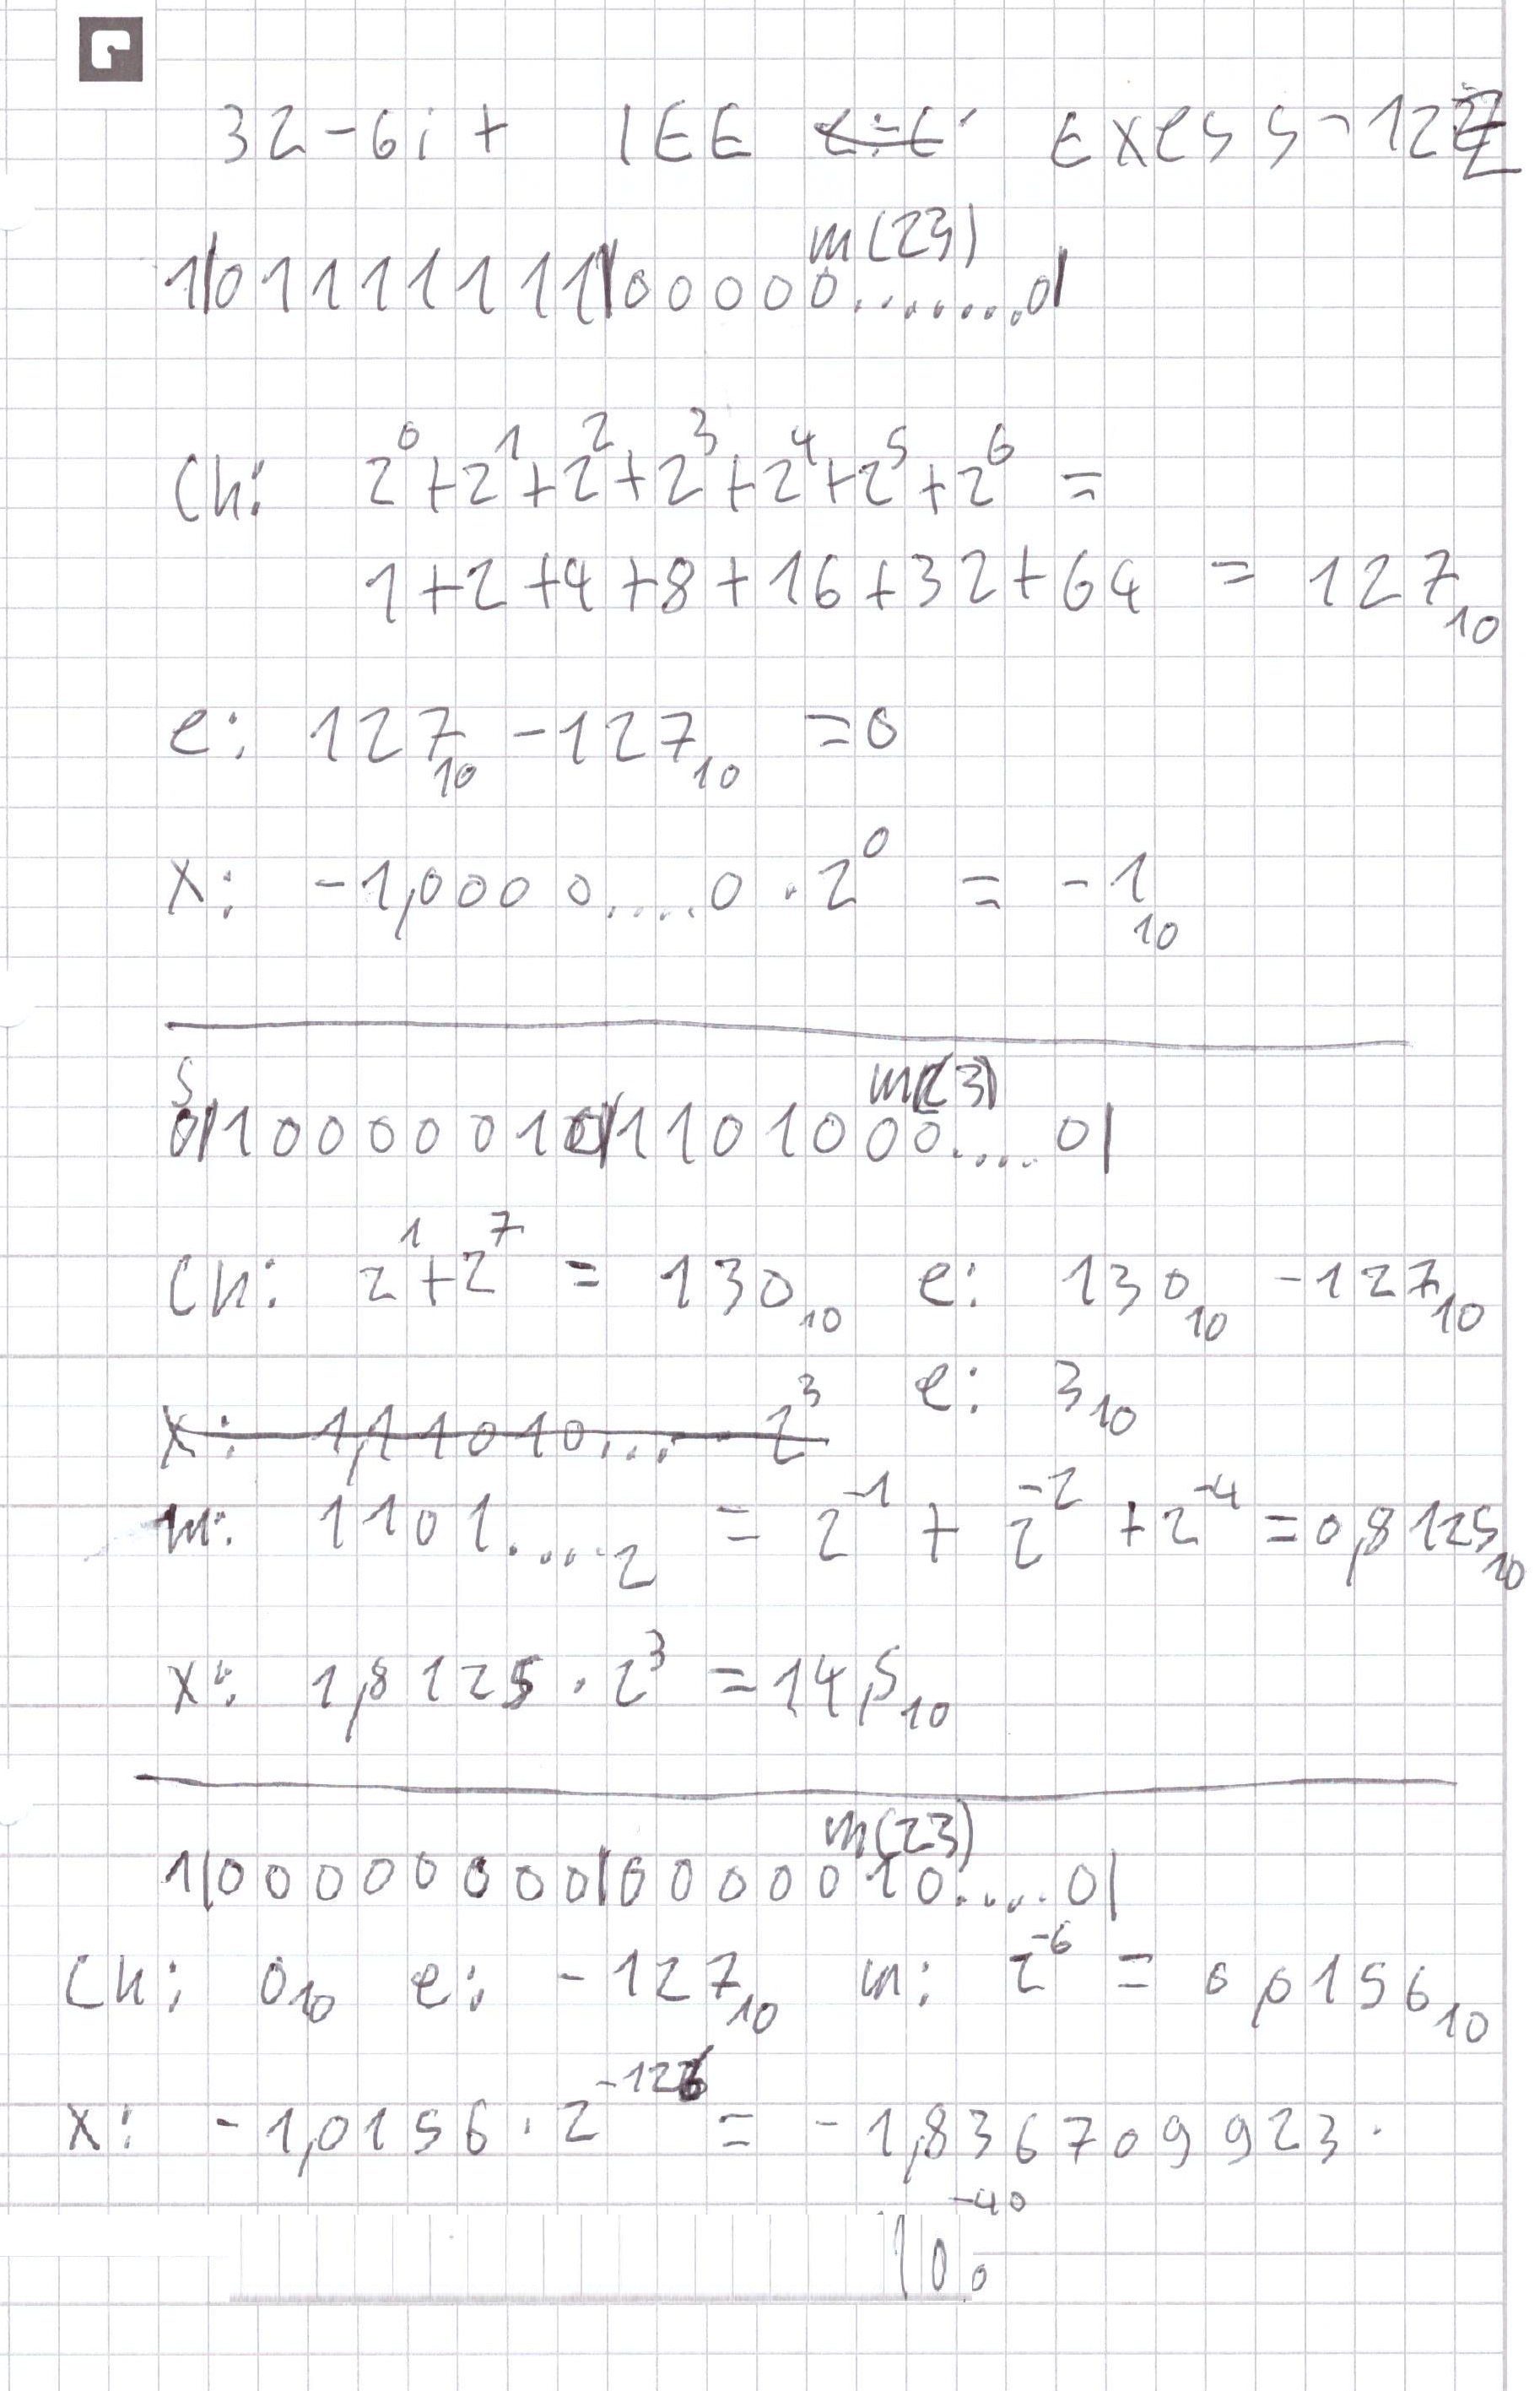 32-bit IEE Exess-127
m(23)
1|01111111|00000.......0|
Ch: 2^0+2^1+2^2+2^3+2^4+2^5+2^6 =
1+2+4+8+16+32+64 = 127₁₀
e: 127₁₀ -127₁₀ =0
X: -1,0000....0 · 2^0 = -1₁₀
S m(23)
0|10000010|1101000....0|
Ch: 2^1+2^7 = 130₁₀ e: 130₁₀ -127₁₀
X: 1,11010... · 2^3 e: 3₁₀
m: 1101....₂ = 2^-1 + 2^-2 + 2^-4 = 0,8125₁₀
X: 1,8125 · 2^3 = 14,5₁₀
m(23)
1|00000000|0000010....0|
Ch: 0₁₀ e: -127₁₀ m: 2^-6 = 0,0156₁₀
X: -1,0156 · 2^-126 = -1,836709923 ·
10^-40